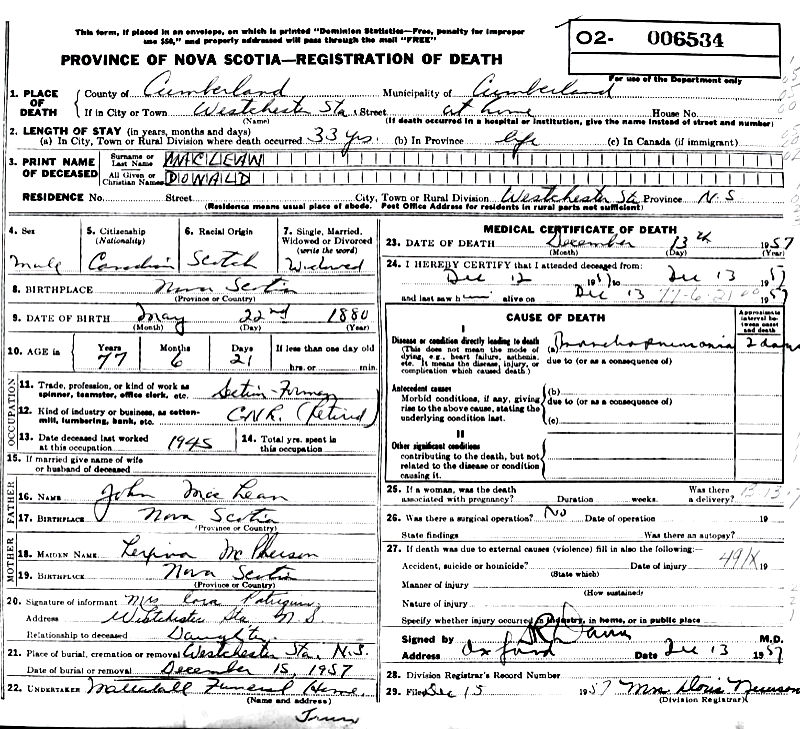 This form, if placed in an envelope, on which is printed "Dominion Statistics—Free, penalty for improper
use $50," and properly addressed will pass through the mail "FREE"
PROVINCE OF NOVA SCOTIA—REGISTRATION OF DEATH
O2- 006534
For use of the Department only
1. PLACE OF DEATH
County of Cumberland Municipality of Cumberland
If in City or Town Westchester Sta. Street at home House No.
(Name) (If death occurred in a hospital or institution, give the name instead of street and number)
2. LENGTH OF STAY (in years, months and days)
(a) In City, Town or Rural Division where death occurred 33 yrs (b) In Province life (c) In Canada (if immigrant)
3. PRINT NAME OF DECEASED
Surname or Last Name MACLEAN
All Given or Christian Names DONALD
RESIDENCE No. Street City, Town or Rural Division Westchester Sta Province N.S
(Residence means usual place of abode. Post Office Address for residents in rural parts not sufficient)
4. Sex Male
5. Citizenship (Nationality) Canadian
6. Racial Origin Scotch
7. Single, Married, Widowed or Divorced (write the word) Widowed
8. BIRTHPLACE Nova Scotia
(Province or Country)
9. DATE OF BIRTH May 22nd 1880
(Month) (Day) (Year)
10. AGE in Years 77 Months 6 Days 21 If less than one day old hrs. or min.
OCCUPATION
11. Trade, profession, or kind of work as spinner, teamster, office clerk, etc. Section-Foreman
12. Kind of industry or business, as cotton-mill, lumbering, bank, etc. C.N.R. (Retired)
13. Date deceased last worked at this occupation 1945
14. Total yrs. spent in this occupation
15. If married give name of wife or husband of deceased
FATHER
16. NAME John MacLean
17. BIRTHPLACE Nova Scotia
(Province or Country)
MOTHER
18. MAIDEN NAME McPherson
19. BIRTHPLACE Nova Scotia
(Province or Country)
20. Signature of informant Mrs Cora Patriquin
Address Westchester Sta N S
Relationship to deceased Daughter
21. Place of burial, cremation or removal Westchester Sta., N.S.
Date of burial or removal December 15, 1957
22. UNDERTAKER Mattatall Funeral Home
(Name and address)
Truro
MEDICAL CERTIFICATE OF DEATH
23. DATE OF DEATH December 13th 1957
(Month) (Day) (Year)
24. I HEREBY CERTIFY that I attended deceased from:
Dec 12 1957 to Dec 13 1957
and last saw him alive on Dec 13 77-6-21 1957
CAUSE OF DEATH
Approximate interval between onset and death
I
Disease or condition directly leading to death
(This does not mean the mode of dying, e.g., heart failure, asthenia, etc. It means the disease, injury, or complication which caused death.)
(a) Bronchopneumonia 2 days
due to (or as a consequence of)
Antecedent causes
Morbid conditions, if any, giving rise to the above cause, stating the underlying condition last.
(b)
due to (or as a consequence of)
(c)
II
Other significant conditions
contributing to the death, but not related to the disease or condition causing it.
25. If a woman, was the death associated with pregnancy? Duration weeks. Was there a delivery?
26. Was there a surgical operation? No Date of operation 19
State findings Was there an autopsy?
27. If death was due to external causes (violence) fill in also the following:—
Accident, suicide or homicide? Date of injury 491X 19
(State which)
Manner of injury
(How sustained)
Nature of injury
Specify whether injury occurred in industry, in home, or in public place
Signed by M.D.
Address Oxford Date Dec 13 1957
28. Division Registrar's Record Number
29. Filed Dec 15 1957 Mrs Doris
(Division Registrar)